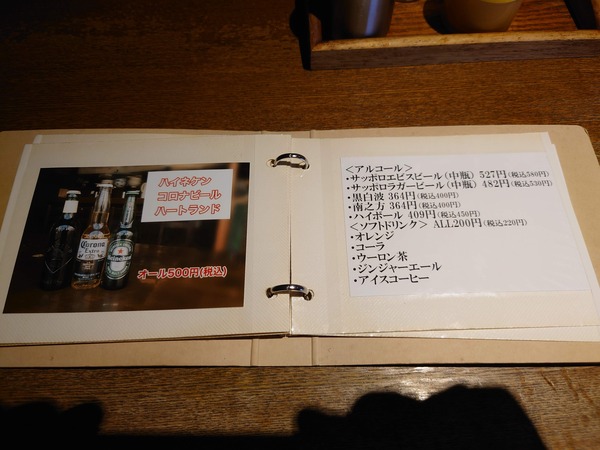 ハイネケン
コロナビール
ハートランド
Corona
Extra
Heineken
オール500円(税込)
＜アルコール＞
・サッポロエビスビール(中瓶) 527円(税込580円)
・サッポロラガービール(中瓶) 482円(税込530円)
・黒白波 364円(税込400円)
・南之方 364円(税込400円)
・ハイボール 409円(税込450円)
＜ソフトドリンク＞ ALL200円(税込220円)
・オレンジ
・コーラ
・ウーロン茶
・ジンジャーエール
・アイスコーヒー